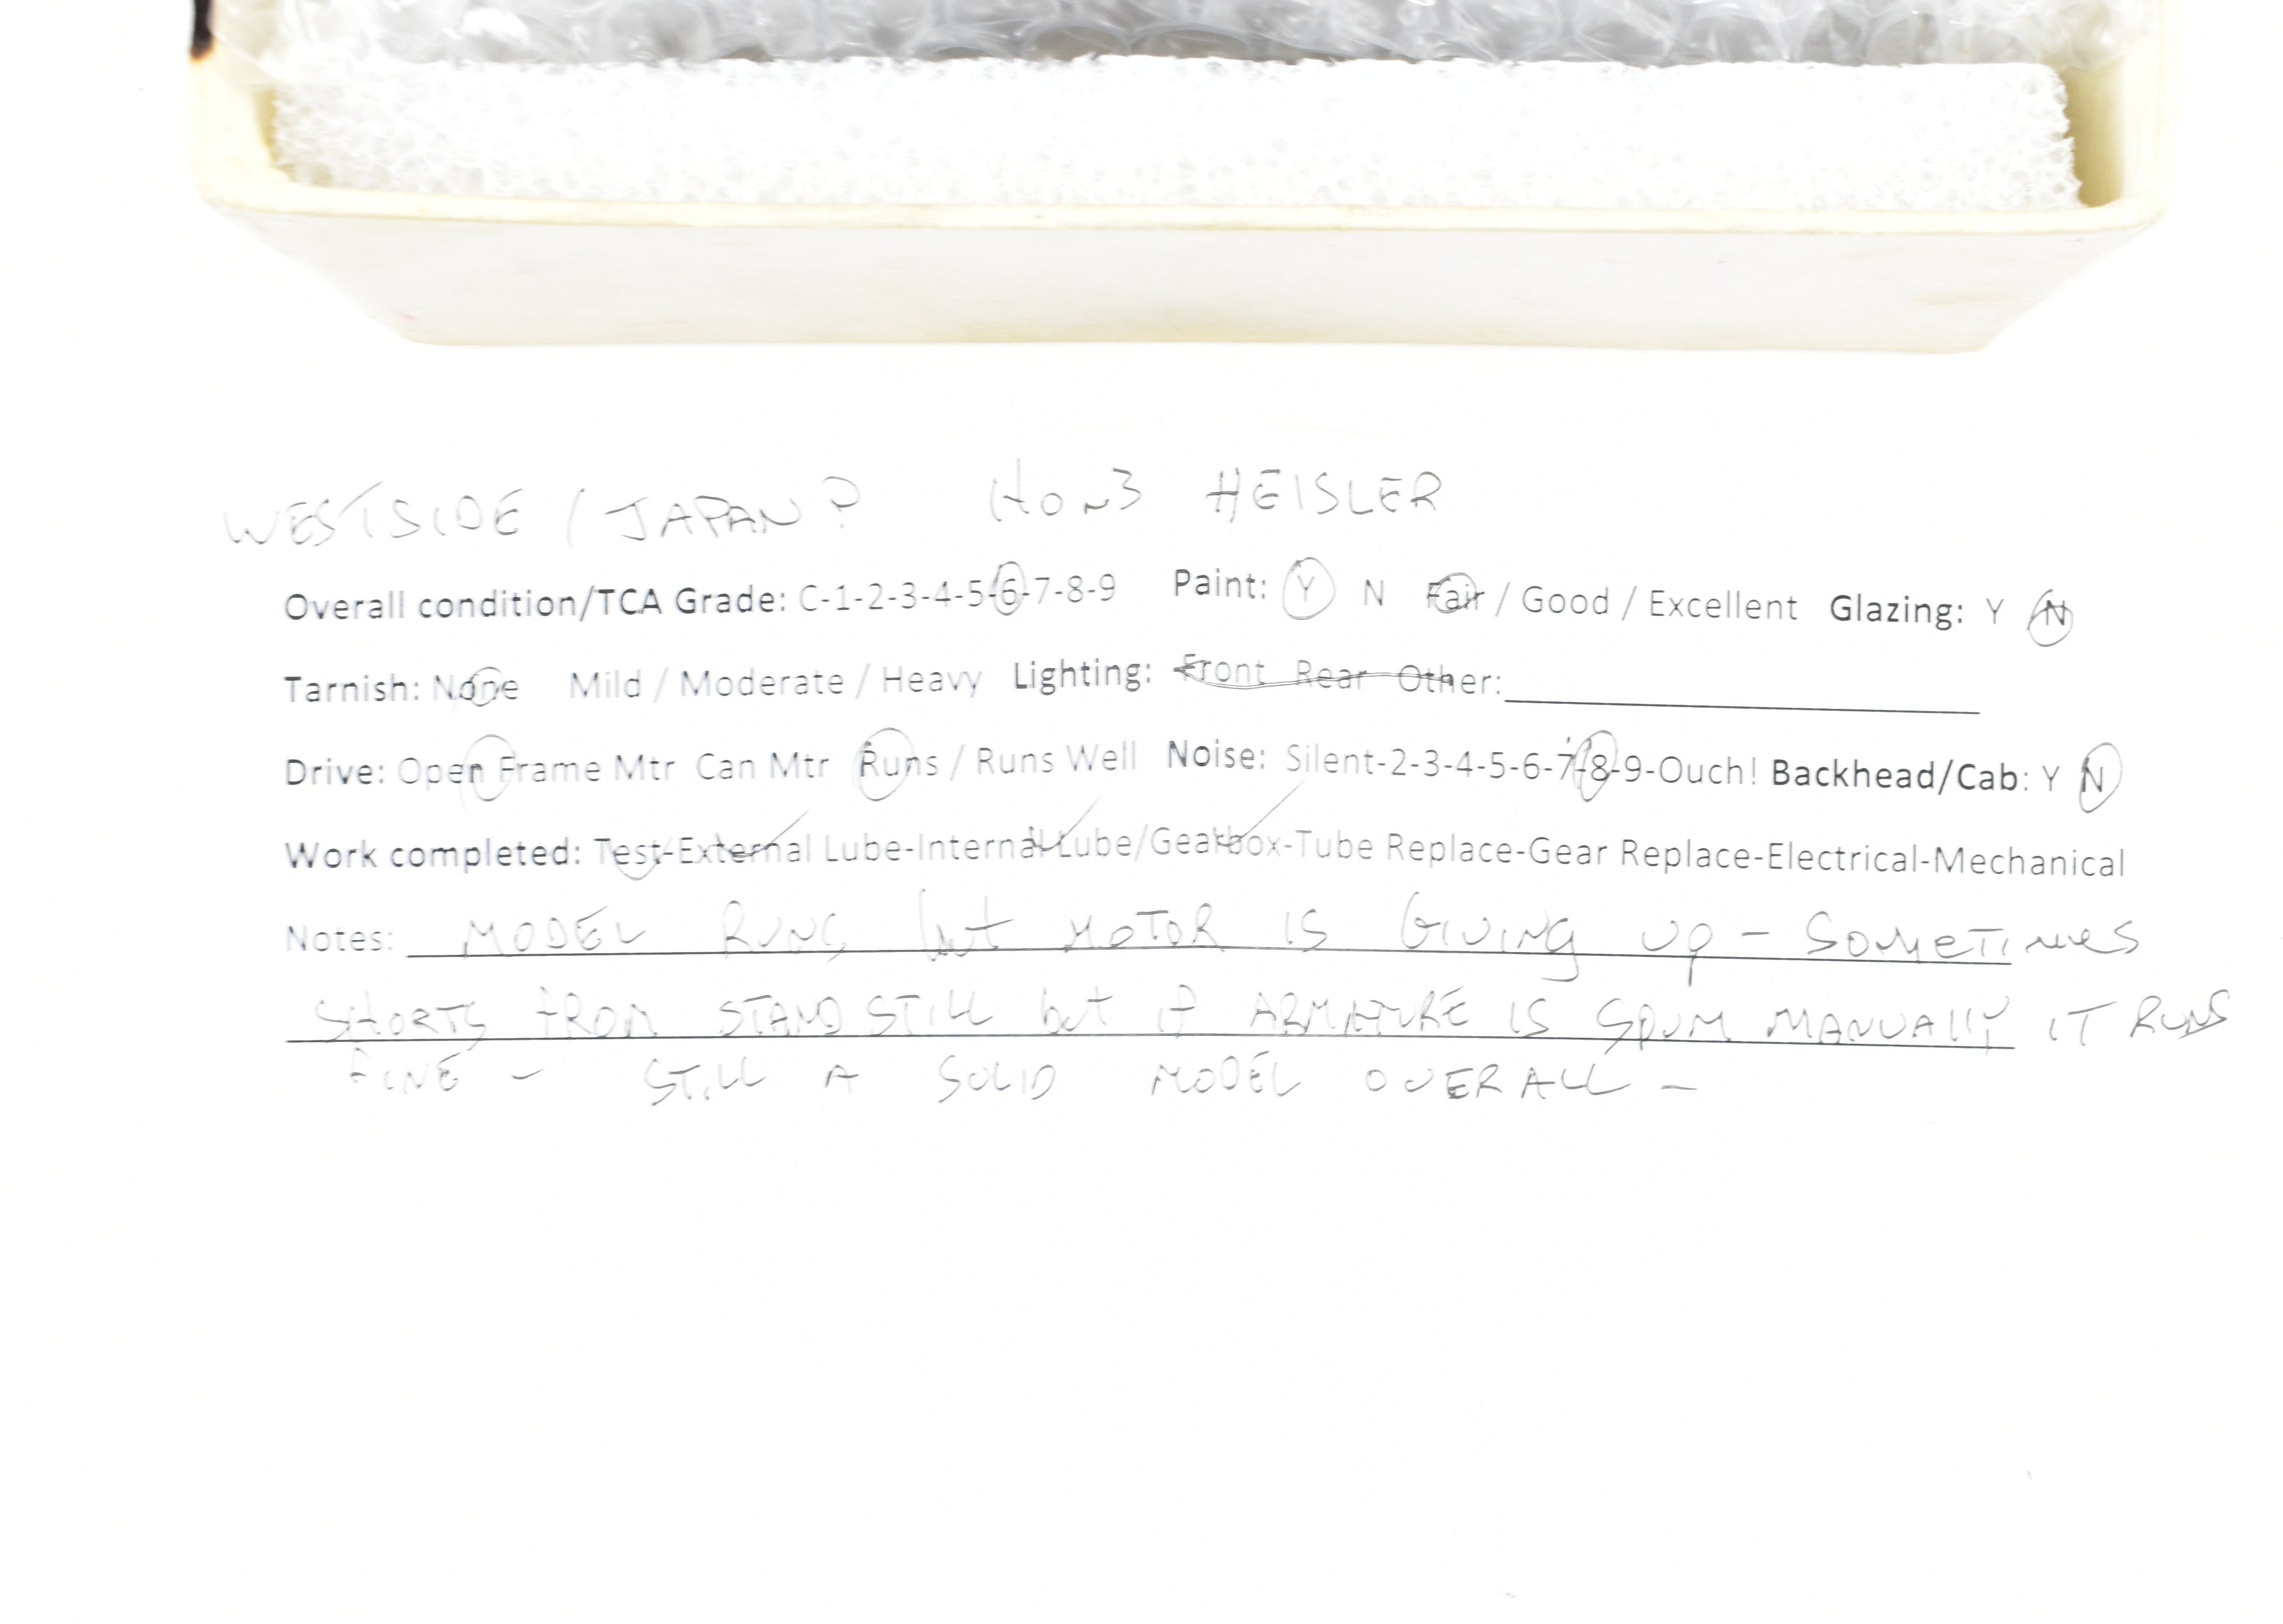 WESTSIDE / JAPAN? HOn3 HEISLER
Overall condition/TCA Grade: C-1-2-3-4-5-6-7-8-9 Paint: Y N Fair / Good / Excellent Glazing: Y N
Tarnish: None Mild / Moderate / Heavy Lighting: Front Rear Other:
Drive: Open Frame Mtr Can Mtr Runs / Runs Well Noise: Silent-2-3-4-5-6-7-8-9-Ouch! Backhead/Cab: Y N
Work completed: Test-External Lube-Internal Lube/Gearbox-Tube Replace-Gear Replace-Electrical-Mechanical
Notes: MODEL RUNS but MOTOR IS GIVING UP - SOMETIMES
SHORTS FROM STAND STILL but if ARMATURE IS SPUM MANUALLY IT RUNS
FINE - STILL A SOLID MODEL OVERALL -